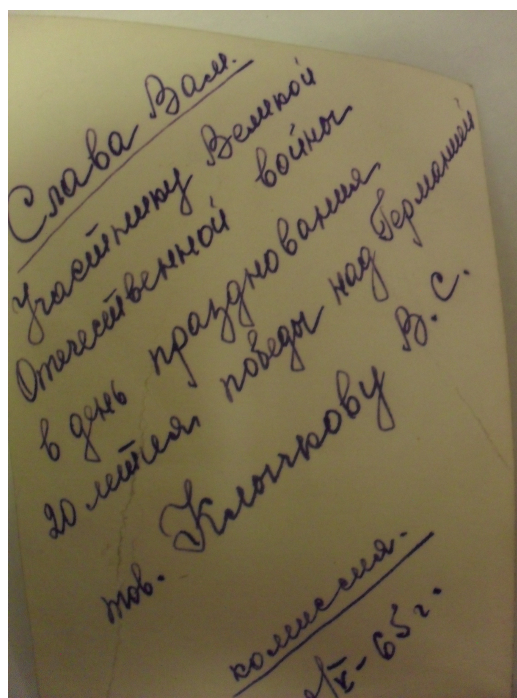 Слава Вам.
Участнику Великой
Отечественной войны
в день празднования
20 летия победы над Германией
тов. Клычкову В.С.
комиссия.
/V-65г.